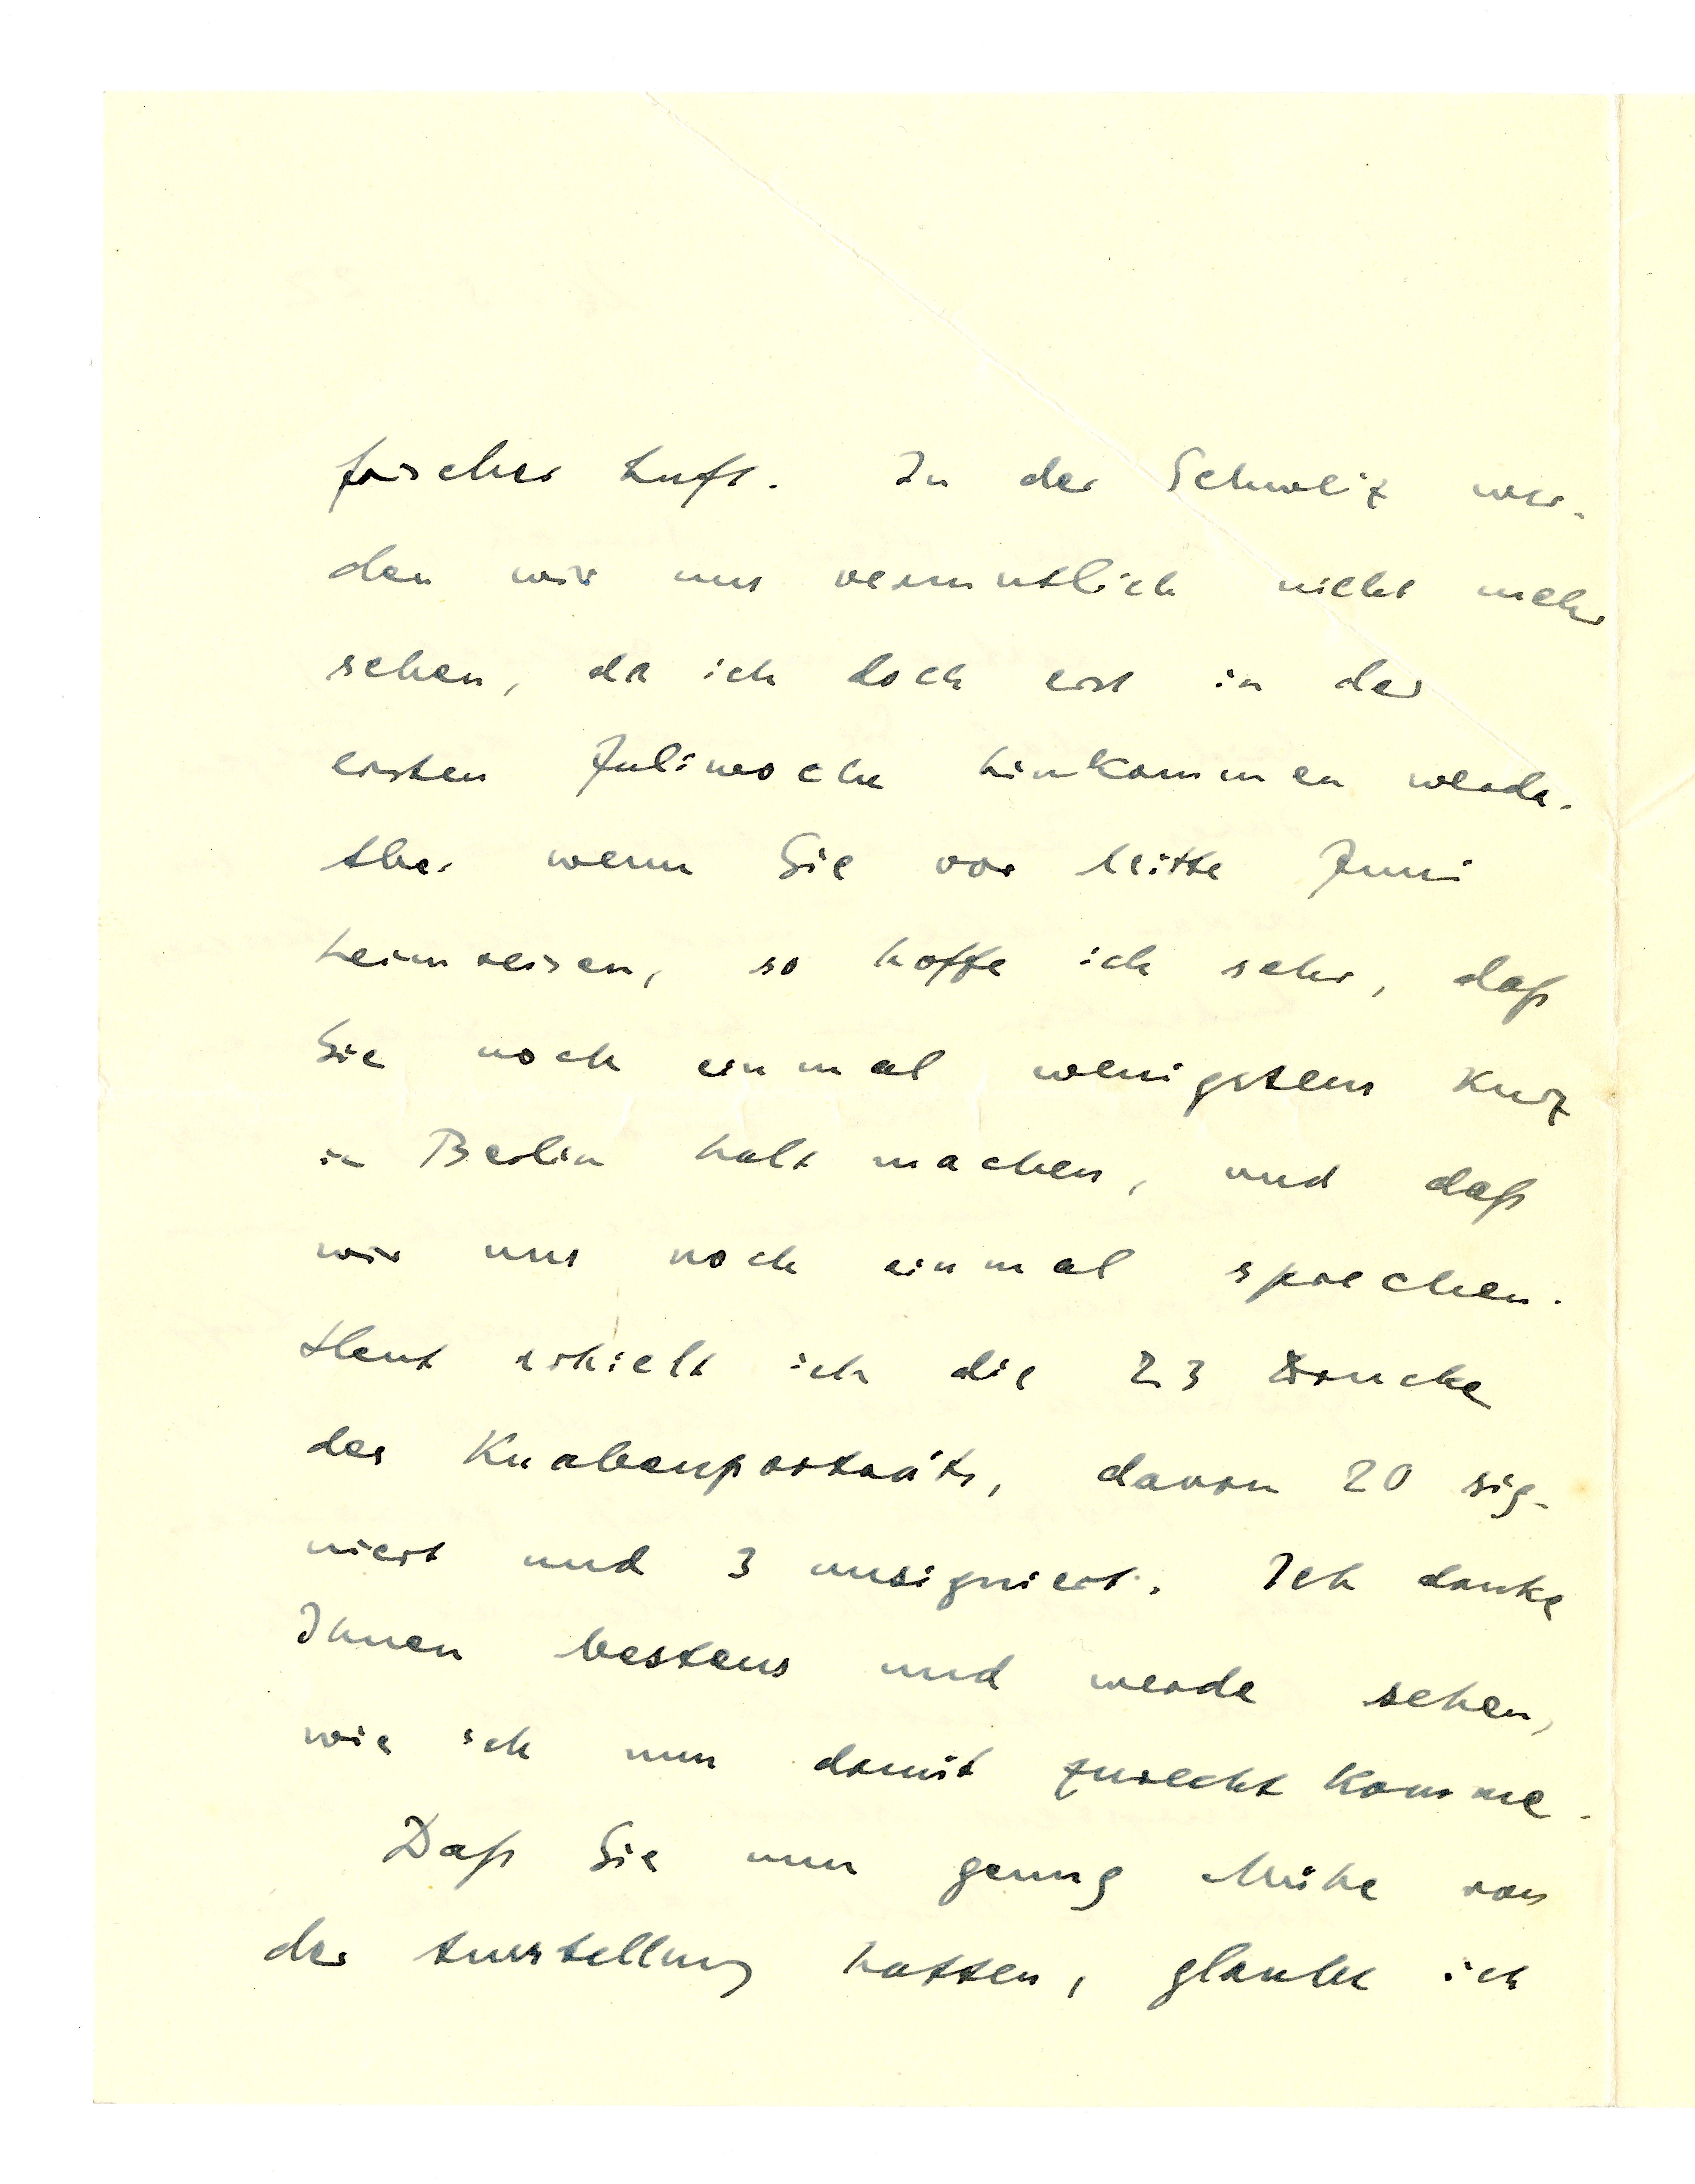 frischer Luft. In der Schweiz wer-
den wir uns vermutlich nicht mehr
sehen, da ich doch erst in der
ersten Juliwoche hinkommen werde.
Aber wenn Sie vor Mitte Juni
heimreisen, so hoffe ich sehr, daß
Sie noch einmal wenigstens kurz
in Berlin halt machen, und daß
wir uns noch einmal sprechen.
Heut erhielt ich die 23 Drucke
des Knabenporträts, davon 20 sig-
niert und 3 unsigniert. Ich danke
Ihnen bestens und werde sehen,
wie ich nun damit zurecht komme.
Daß Sie nun genug Mühe von
der Ausstellung hatten, glaube ich